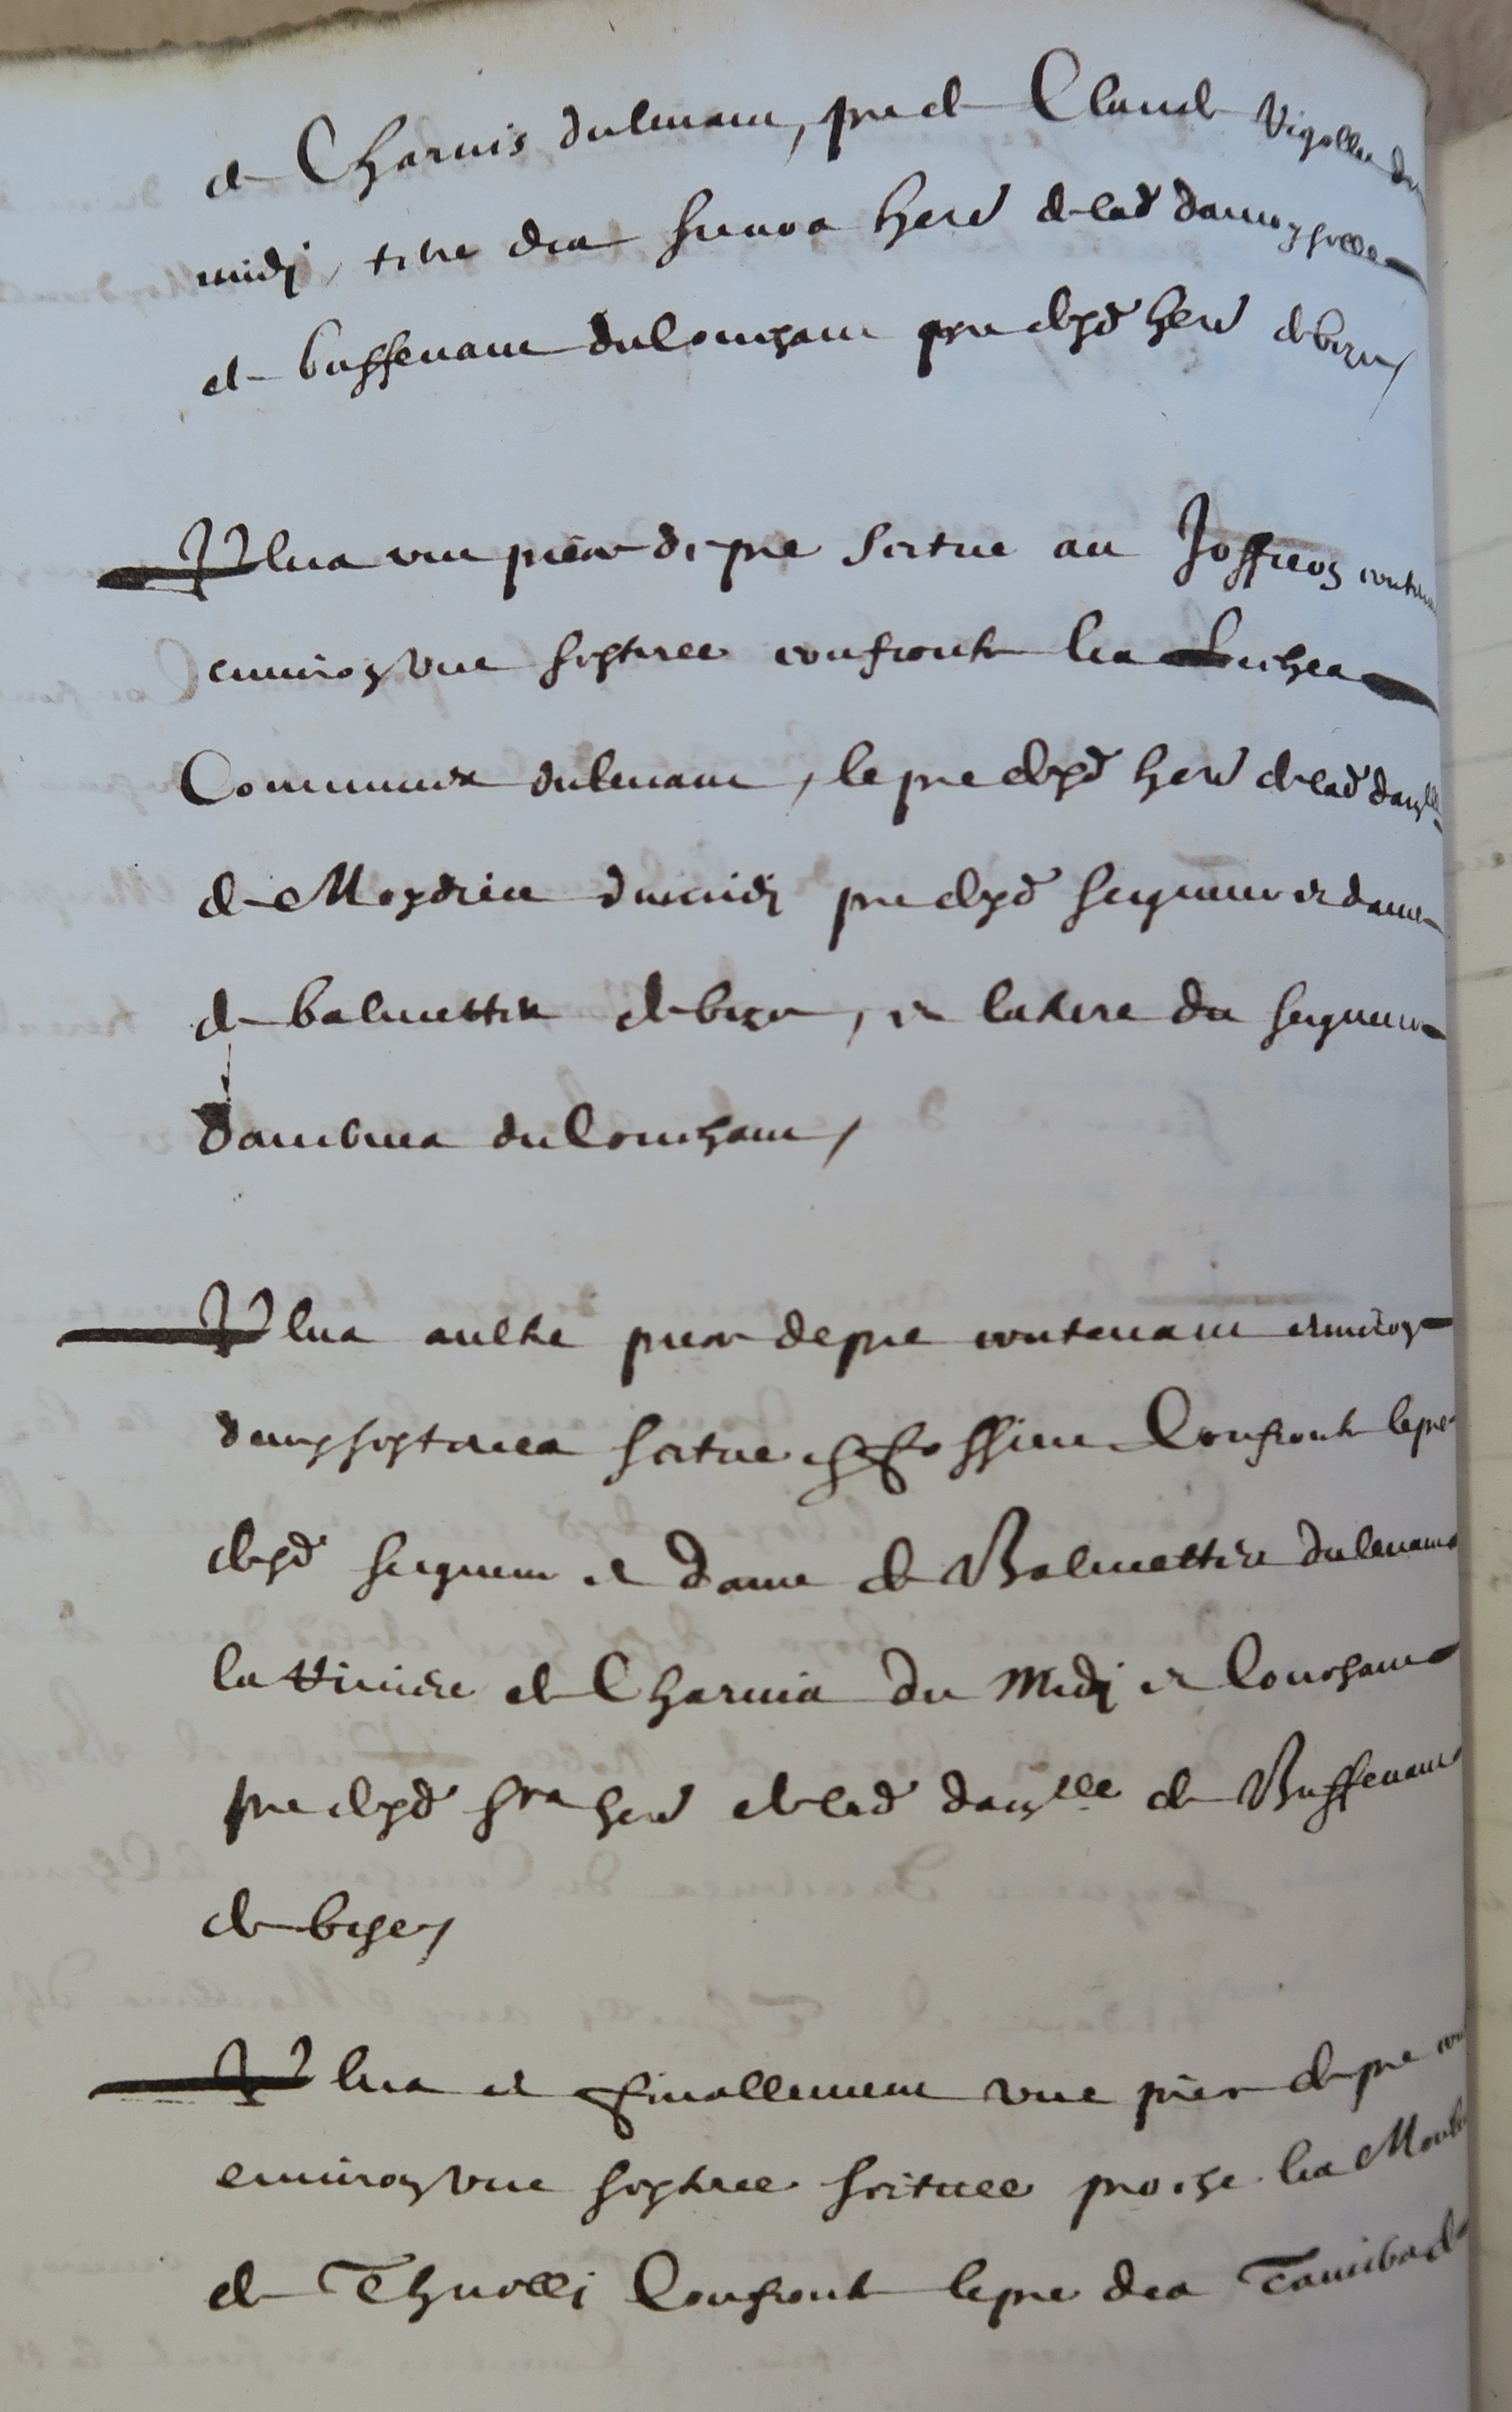 de Charnis du leuant, pre de Claude Vigollet du
midy, terre des susnoes herd de lad damoyselle
de buffeuant du Couchant pre desd herd de bize /
Plus vne piece de pre scitue au contenant
enuiron vne septeree confronte les
Communes du leuant, le pre desd herd de lad dam.lle
de Moydieu du midy pre desd seigneur et dame
de balmettes de bize, et la terre du seigneur
dambrea du Couchant /
Plus aultre piece de pre contenant enuiron
deux septerees scitue en Confronte le pre
desd seigneur et dame de Balmettes du leuant
la riuiere de Charnis du Midy et Couchant
pre desd srs herd de lad dam.lle de Buffeuant
de bize /
Plus et finallement vne piece de pre cont
enuiron vne septeree scituee proche les
de Thuelli Confronte le pre des